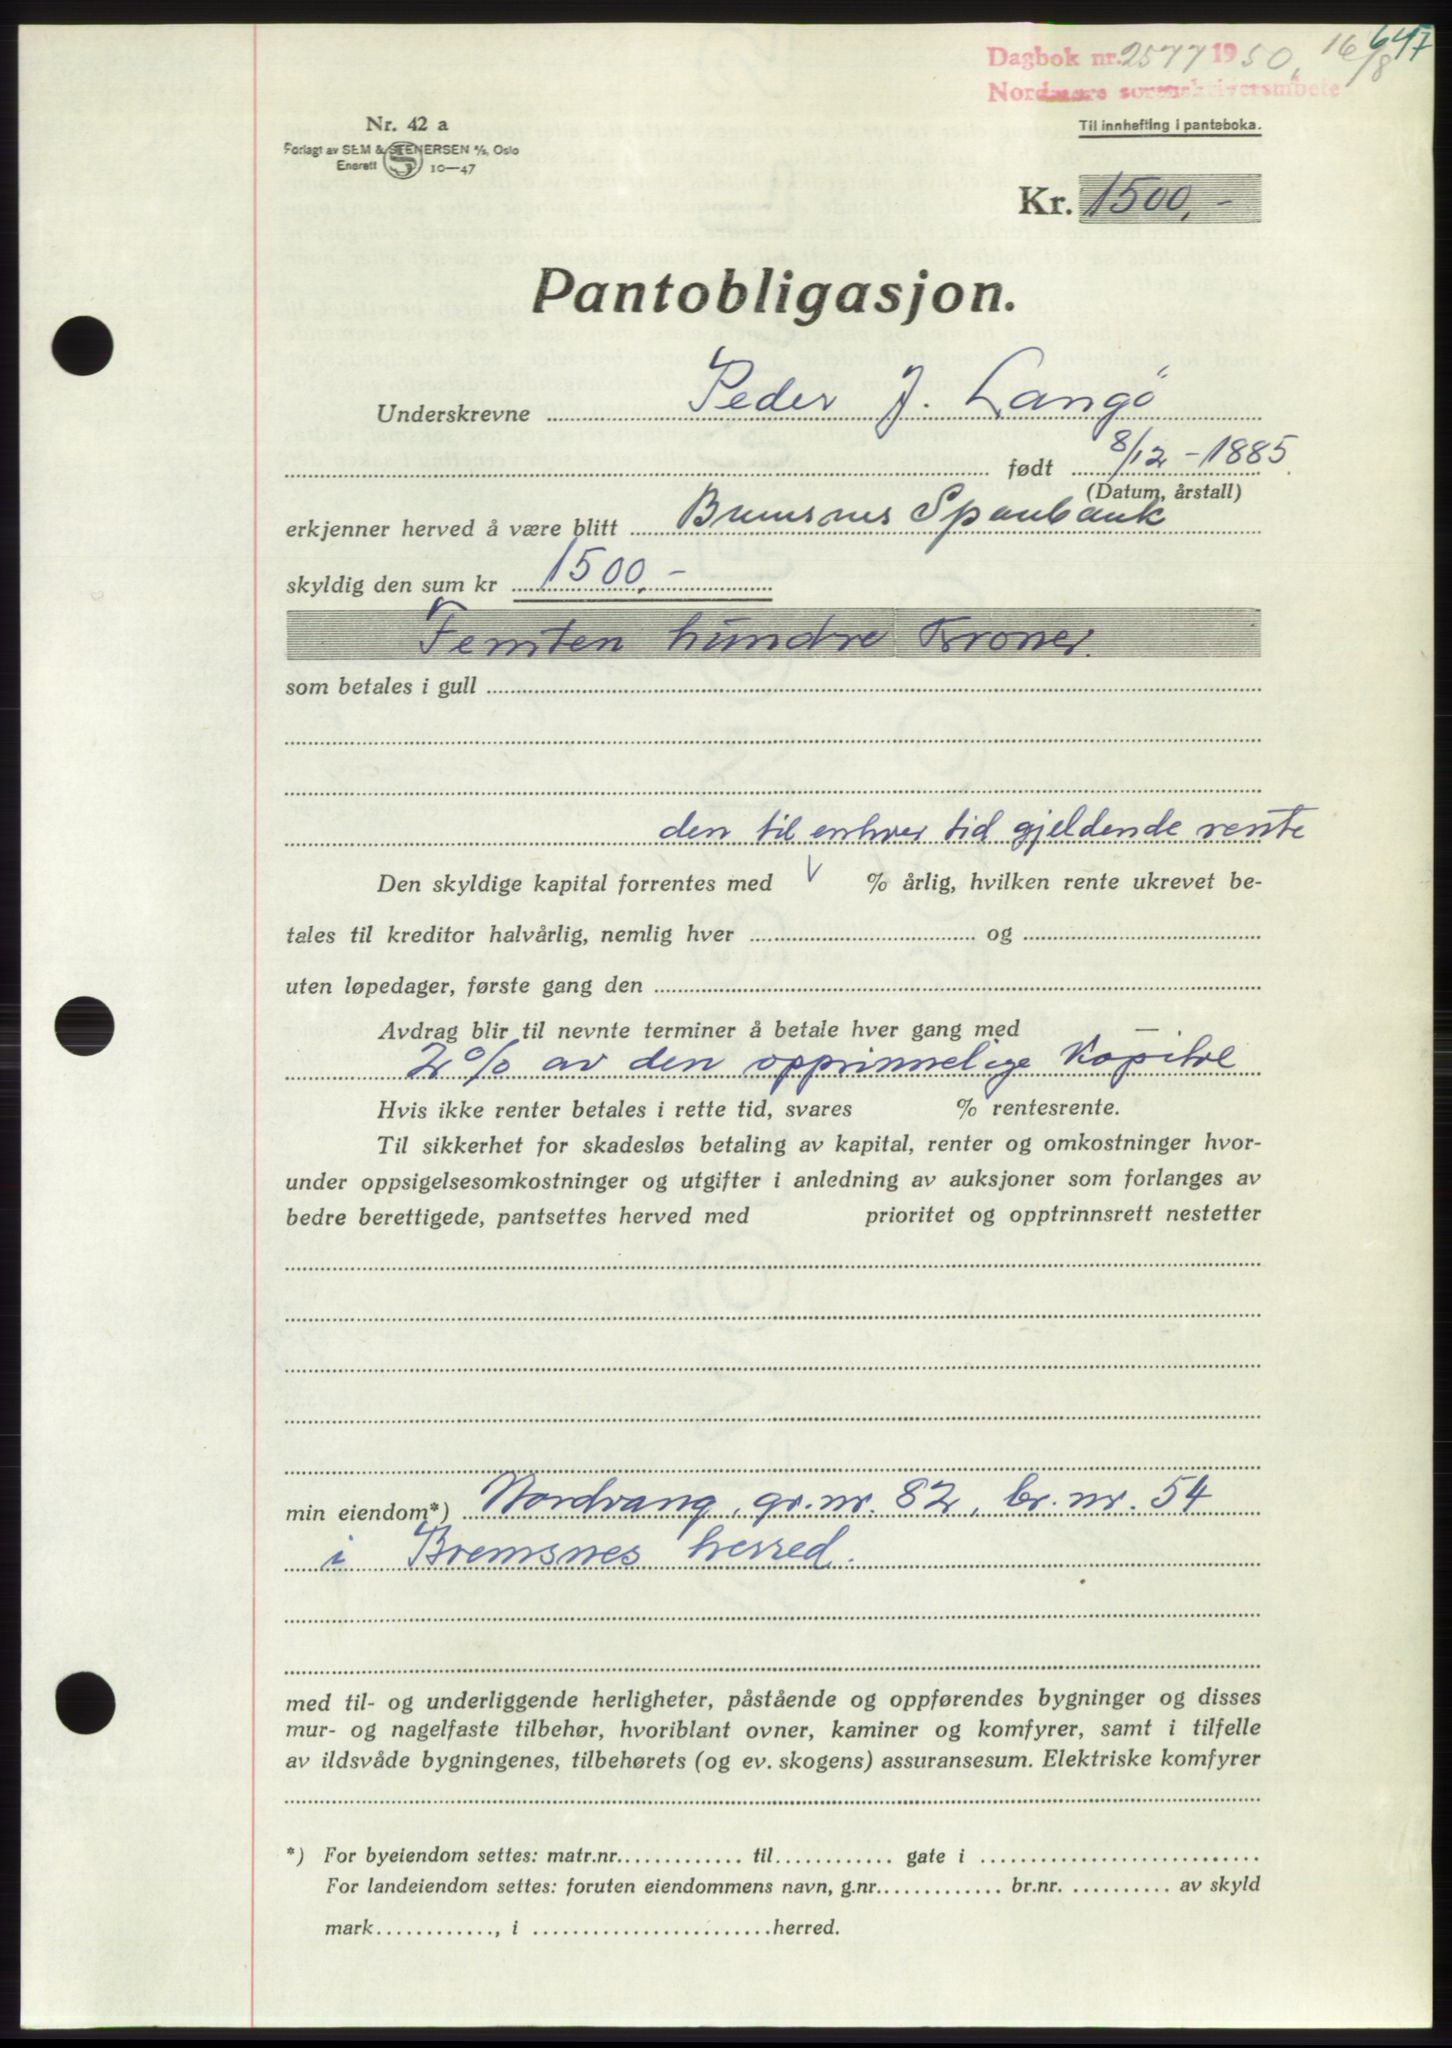 647
Dagbok nr. 2577 1950, 16/8
Nordmøre sorenskriverembete
Nr. 42 a
Til innhefting i panteboka.
Forlagt av SEM & STENERSEN A/S, Oslo
Enerett S 10—47
Kr. 1500,-
Pantobligasjon.
Underskrevne Peder J. Langö
født 8/12 - 1885.
(Datum, årstall)
erkjenner herved å være blitt Bremsnes Sparebank
skyldig den sum kr 1500,-
Femten hundre Kroner.
som betales i gull
den til enhver tid gjeldende rente
Den skyldige kapital forrentes med V % årlig, hvilken rente ukrevet be-
tales til kreditor halvårlig, nemlig hver og
uten løpedager, første gang den
Avdrag blir til nevnte terminer å betale hver gang med
2 % av den opprinnelige Kapital
Hvis ikke renter betales i rette tid, svares % rentesrente.
Til sikkerhet for skadesløs betaling av kapital, renter og omkostninger hvor-
under oppsigelsesomkostninger og utgifter i anledning av auksjoner som forlanges av
bedre berettigede, pantsettes herved med prioritet og opptrinnsrett nestetter
min eiendom*) Nordvang, gr.nr. 82, br.nr. 54
i Bremsnes herred.
med til- og underliggende herligheter, påstående og oppførendes bygninger og disses
mur- og nagelfaste tilbehør, hvoriblant ovner, kaminer og komfyrer, samt i tilfelle
av ildsvåde bygningenes, tilbehørets (og ev. skogens) assuransesum. Elektriske komfyrer
*) For byeiendom settes: matr.nr. til gate i
For landeiendom settes: foruten eiendommens navn, g.nr. br.nr. av skyld
mark , i herred.